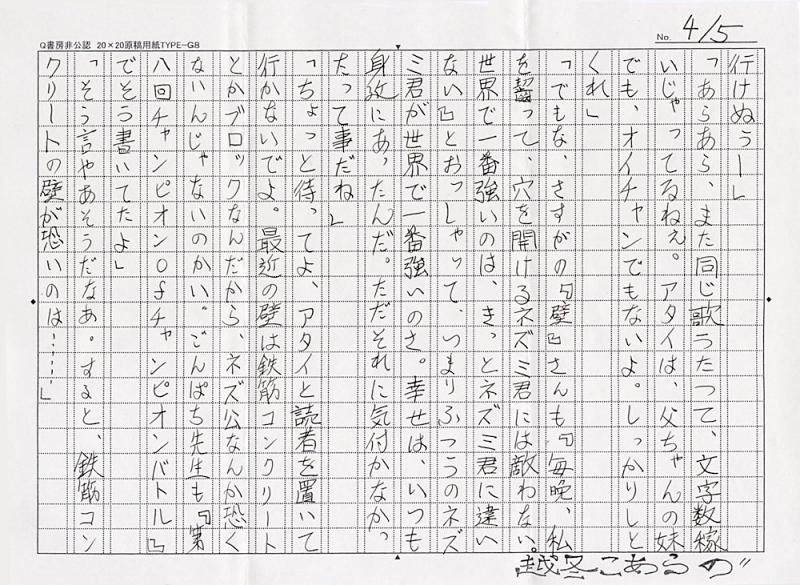 Q書房非公認 20×20原稿用紙TYPE-G8
No. 4/5
行けぬぅー」
「あらあら、また同じ歌うたつて、文字数稼
いじゃってるねぇ。アタイは、父ちゃんの妹
でも、オイチャンでもないよ。しっかりしと
くれ」
「でもな、さすがの『壁』さんも『毎晩、私
を齧って、穴を開けるネズミ君には敵わない。
世界で一番強いのは、きっとネズミ君に違い
ない』とおっしゃッて、つまりふつうのネズ
ミ君が世界で一番強いのさ。幸せは、いつも
身近にあったんだ。ただそれに気付かなかっ
たって事だね」
「ちょっと待ってよ、アタイと読者を置いて
行かないでよ。最近の壁は鉄筋コンクリート
とかブロックなんだから、ネズ公なんか恐く
ないんじゃないのかい。ごんぱち先生も『第
八回チャンピオンofチャンピオンバトル』
でそう書いてたよ」
「そう言やあそうだなぁ。すると、鉄筋コン
クリートの壁が恐いのは……」
越冬こあらの"